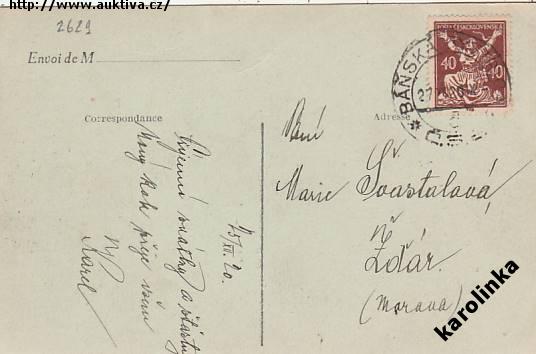 http://www.auktiva.cz/
2629
Envoi de M
POŠTA ČESKOSLOVENSKÁ
40 40
BÁNSKÁ
27
Č.S.
Correspondance
Adresse
Příjemné svátky a šťastný
Nový rok přeje všem
Karel
25/XII. 20.
Marie Švastalová
Žďár.
(Morava)
karolinka